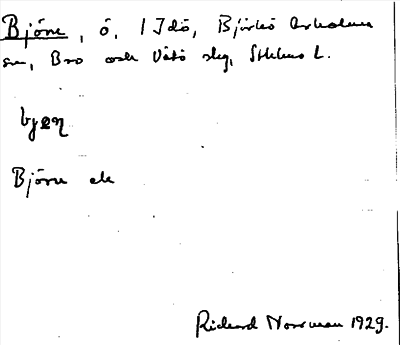 Björe, ö, I Idö, Björkö Arholma
sn, Bro och Vätö skg, Sthlms l.
Björe ek
Rickard Norrman 1929.